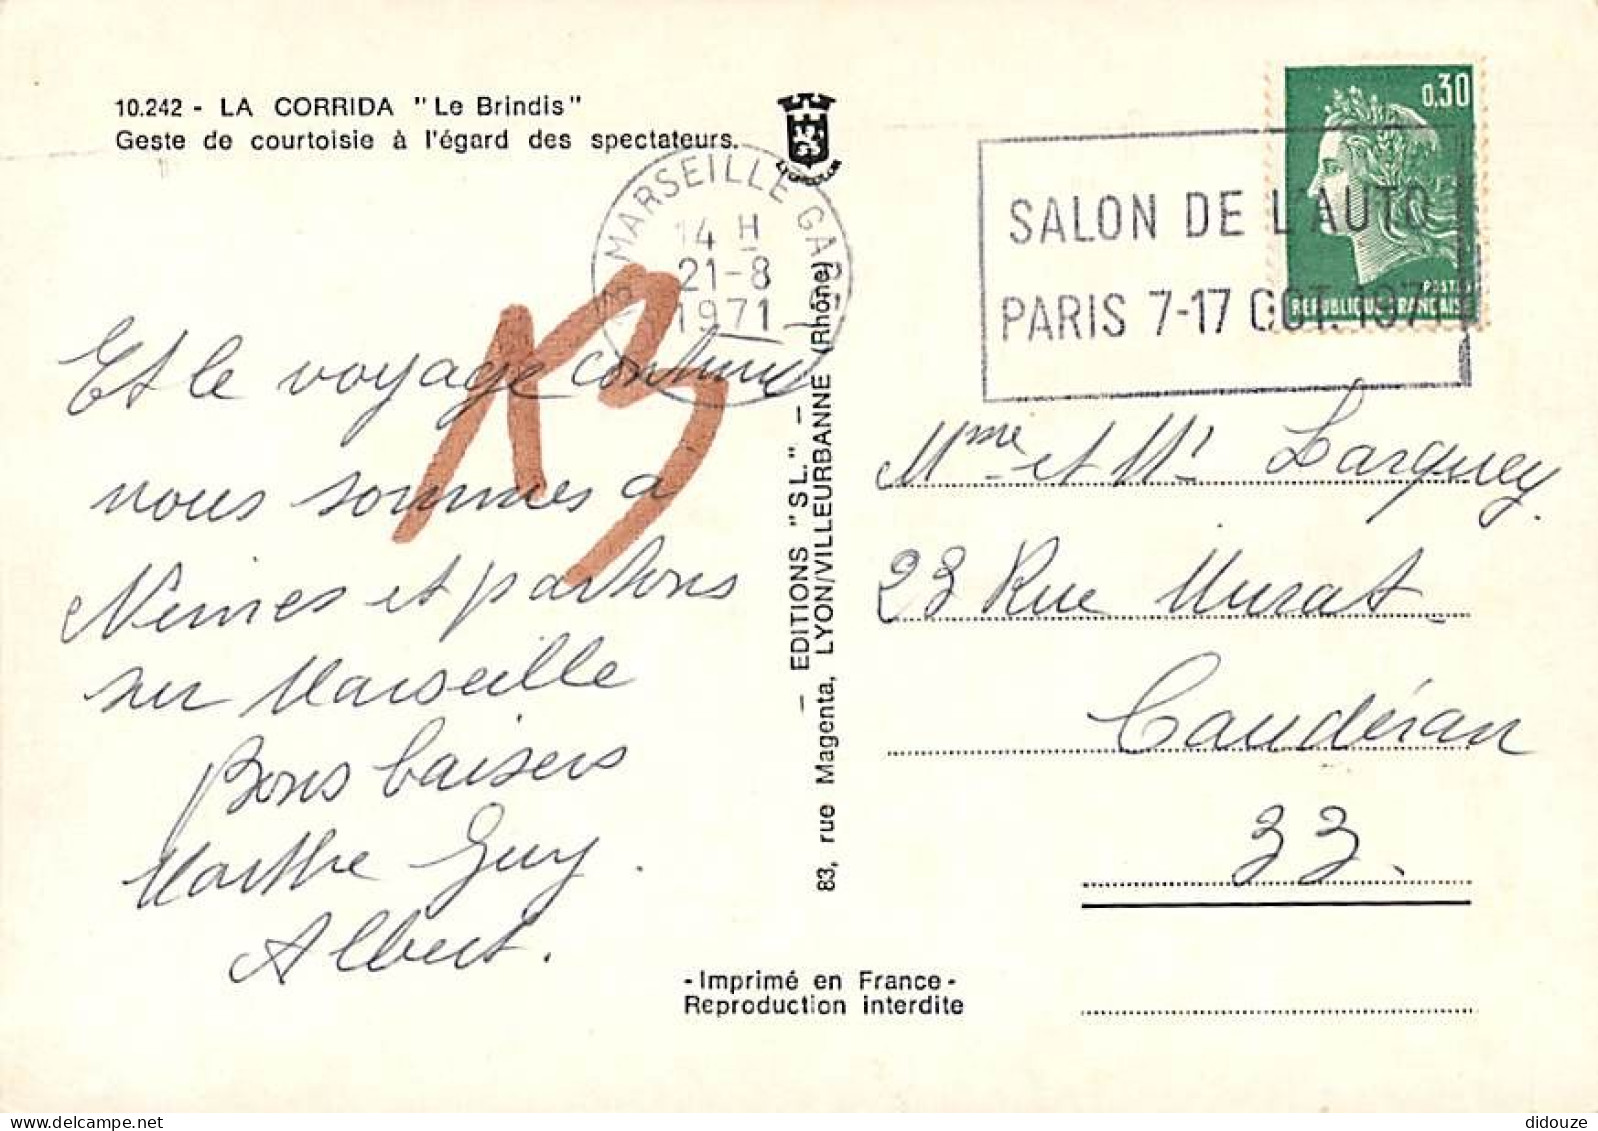 10.242 - LA CORRIDA "Le Brindis"
Geste de courtoisie à l'égard des spectateurs.
LYONCOLOR
13 MARSEILLE GARE
14 H
21-8
1971
SALON DE L'AUTO
PARIS 7-17 OCT. 1971
0,30
POSTES
REPUBLIQUE FRANCAISE
Et le voyage continue
nous sommes à
Nimes et partons
sur Marseille
Bons baisers
Marthe Guy.
Albert.
13
— EDITIONS "SL." —
83, rue Magenta, LYON/VILLEURBANNE (Rhône)
Mme et Mr Larquey.
23 Rue Murat
Caudéran
33.
-Imprimé en France-
Reproduction interdite
delcampe.net
didouze